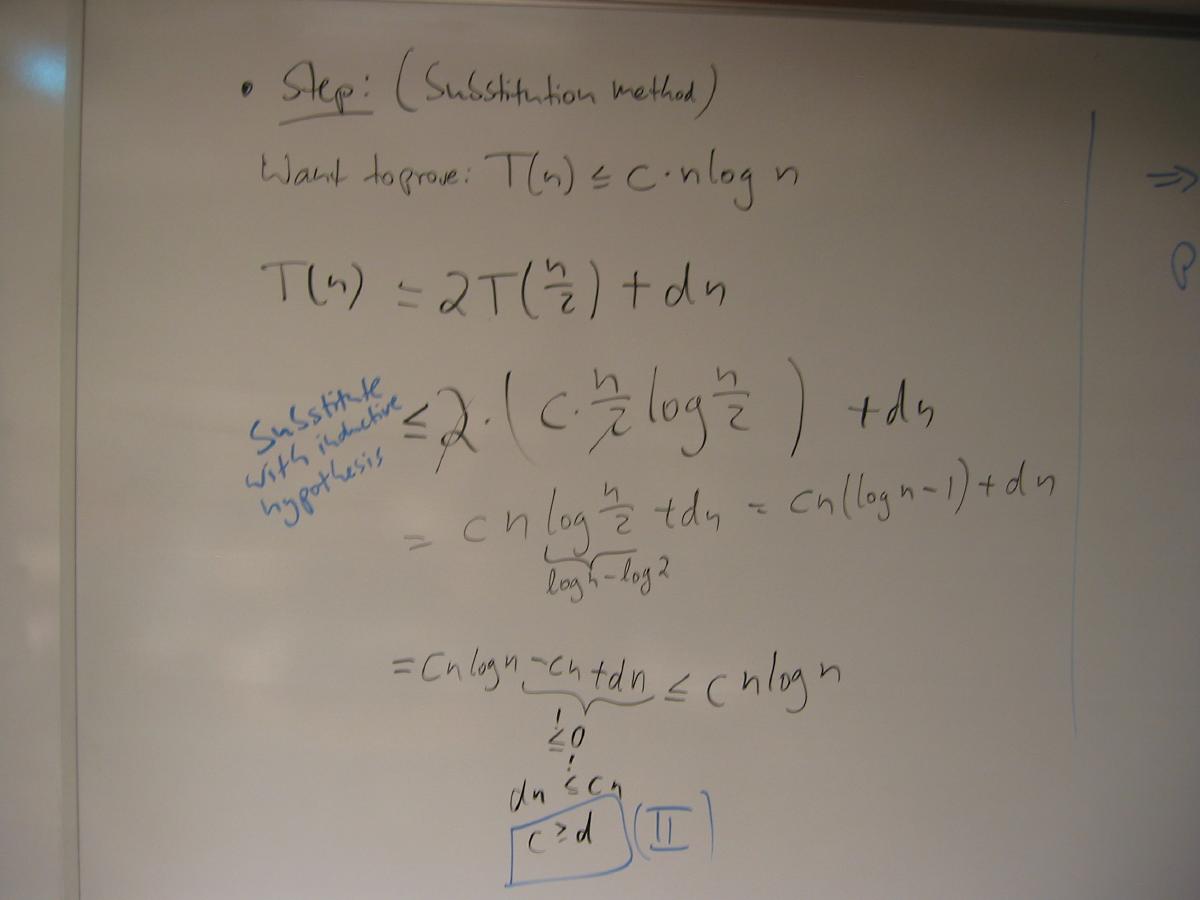 • Step: (Substitution method)
Want to prove: T(n) ≤ c·n log n
T(n) = 2T(n/2) + dn
Substitute
with inductive
hypothesis
≤ 2·(c·n/2 log n/2) + dn
= cn log n/2 + dn = cn(log n - 1) + dn
log n - log 2
= cn log n - cn + dn ≤ c n log n
!
≤ 0
!
dn ≤ cn
c ≥ d (II)
⇒